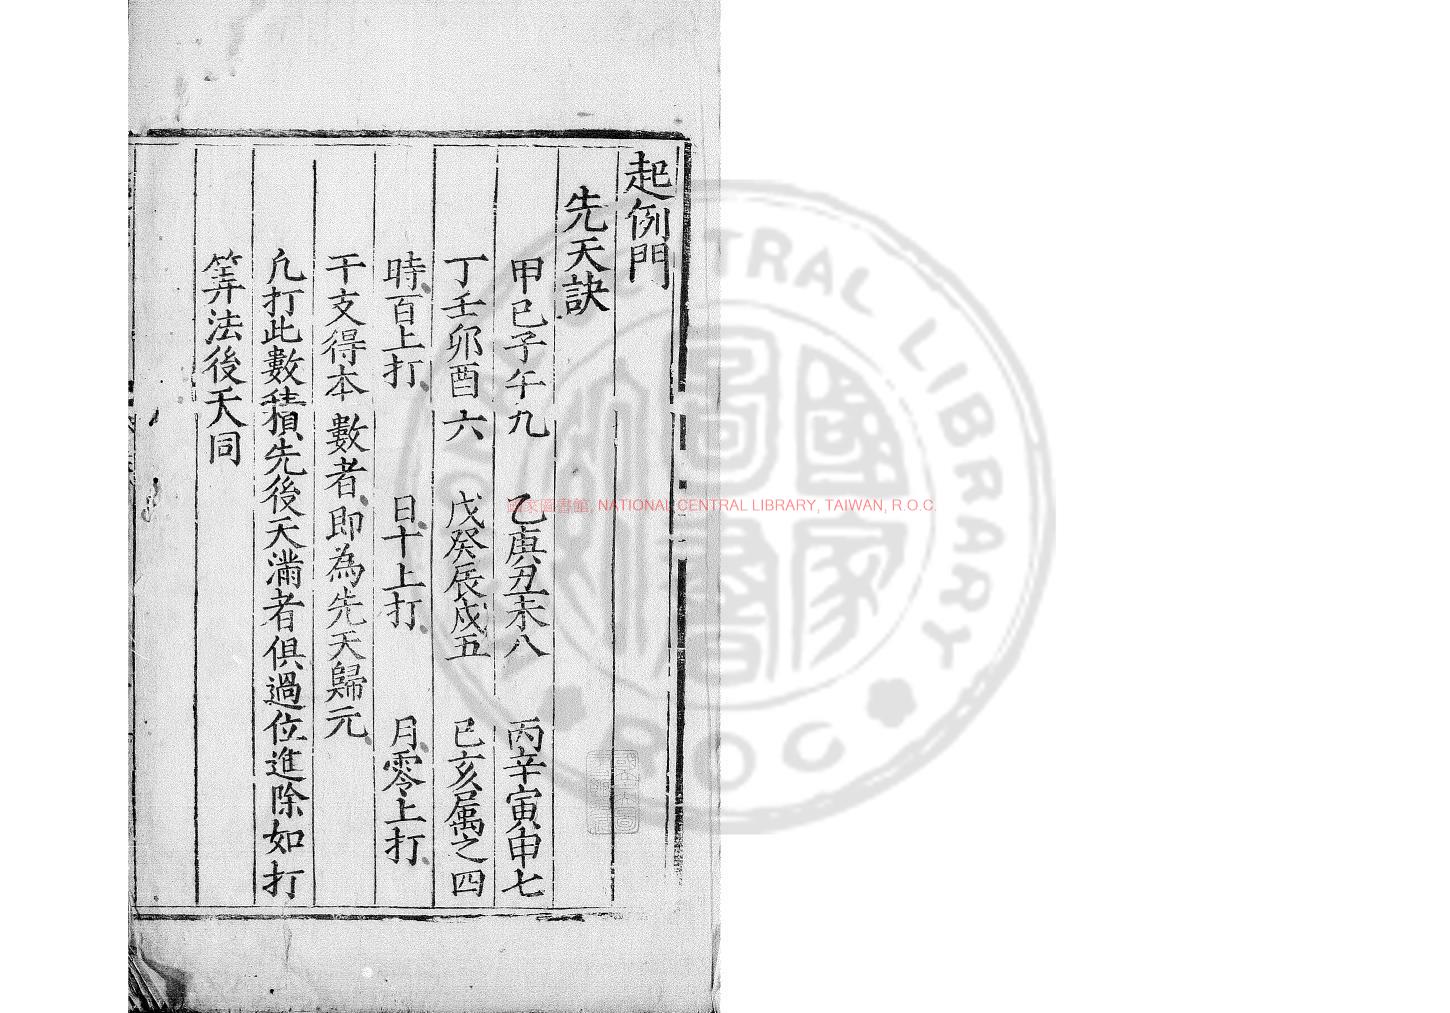 起例門
先天訣
甲己子午九　乙庚丑未八　丙辛寅申七
丁壬卯酉六　戊癸辰戌五　巳亥属之四
時百上打　日十上打　月零上打
干支得本數者即為先天歸元
凡打此數積先後天滿者俱過位進除如打
筭法後天同
國家圖書館, NATIONAL CENTRAL LIBRARY, TAIWAN, R.O.C.
NATIONAL CENTRAL LIBRARY
R.O.C
國家圖書